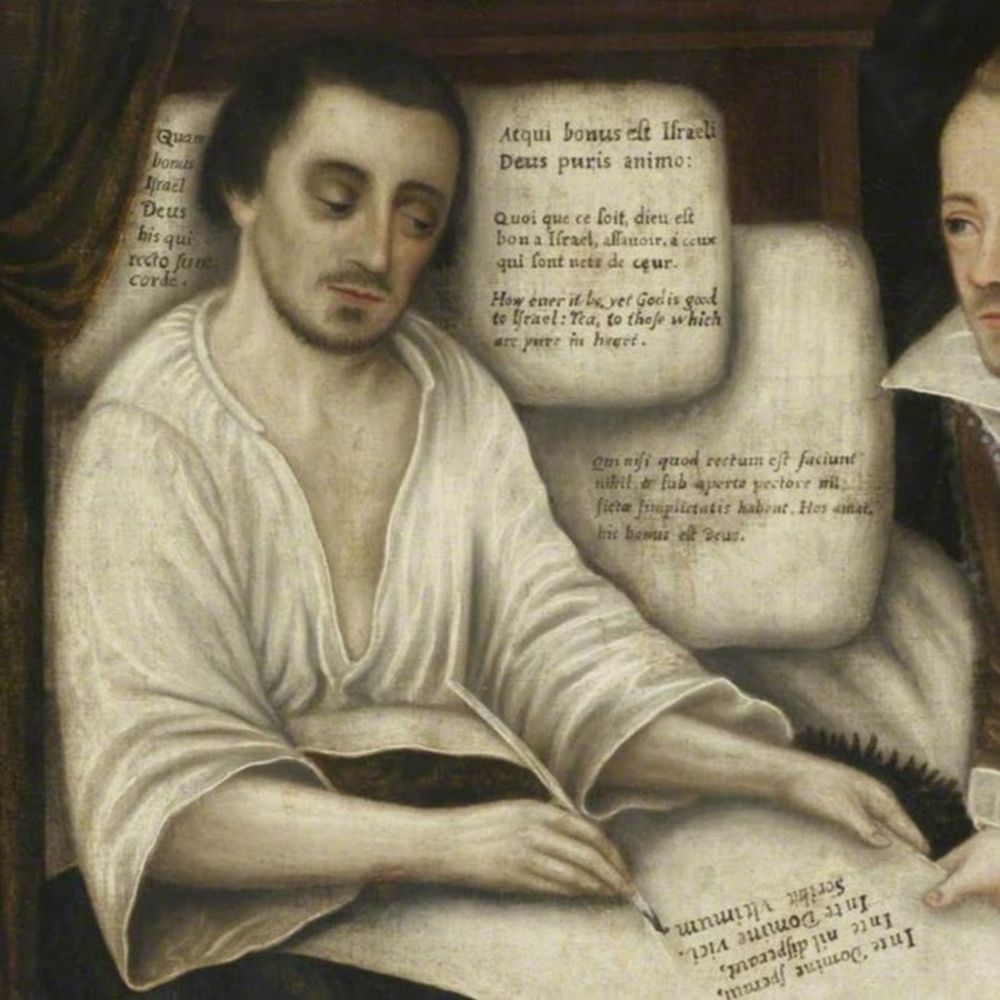 Quam
bonus
Israël
Deus
his qui
recto sunt
corde.
Atqui bonus est Israeli
Deus puris animo:
Quoi que ce soit, dieu est
bon a Israel, assauoir, à ceux
qui sont nets de cœur.
How euer it be, yet God is good
to Israel: Yea, to those which
are pure in heart.
Qui nisi quod rectum est faciunt
nihil, & sub aperto pectore nil
fictæ simplicitatis habent. Hos amat,
his bonus est Deus.
In te Domine speraui,
In te nil disperaui,
In te Domine vici.
Scribit vltimum